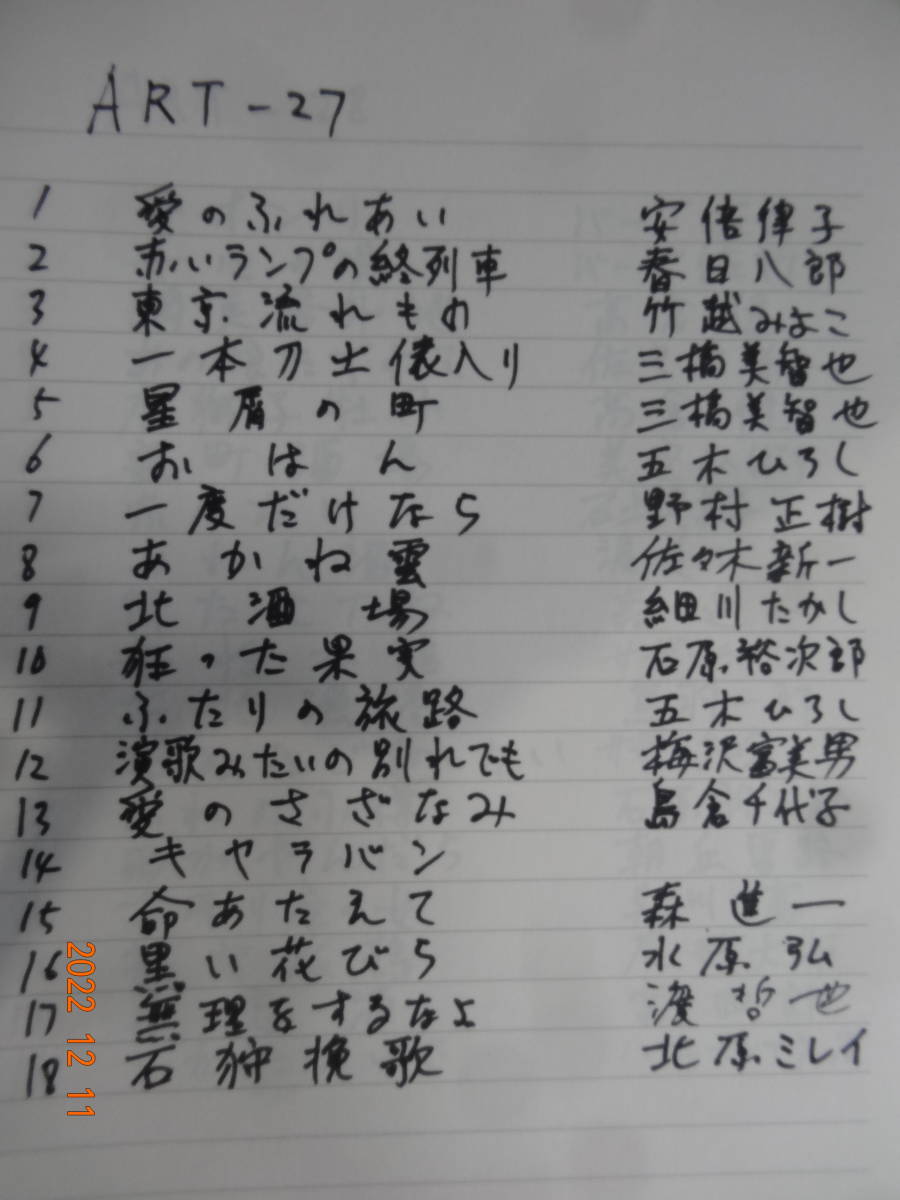 ART-27
1 愛のふれあい 安倍律子
2 赤いランプの終列車 春日八郎
3 東京流れもの 竹越みよこ
4 一本刀土俵入り 三橋美智也
5 星屑の町 三橋美智也
6 おはん 五木ひろし
7 一度だけなら 野村正樹
8 あかね雲 佐々木新一
9 北酒場 細川たかし
10 狂った果実 石原裕次郎
11 ふたりの旅路 五木ひろし
12 演歌みたいの別れでも 梅沢富美男
13 愛のさざなみ 島倉千代子
14 キャラバン
15 命あたえて 森進一
16 黒い花びら 水原弘
17 無理をするなよ 渡哲也
18 石狩挽歌 北原ミレイ
2022 12 11